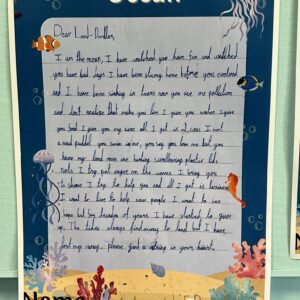 Ocean
Dear Land-Dwellers,
I am the ocean, I have watched you have fun and watched
you have bad days I have been strong have before you evolved
and I have been wishing in tears now you are me pollution
and don't realise that make you live I give you water I give
you food I give you my care all I get is oil cans I not
a sad puddle you swim in me, you say you love me but you
harm my loved ones are hurting swallowing plastic lids
I try put anger on the waves I bring you
to shore I try to help you and all I get is
I want to live to help new people I want to see
hope but for decades of years I have started to give
up. The tides always find way to land but I have
lost my way.. please find a string in your heart.
Name